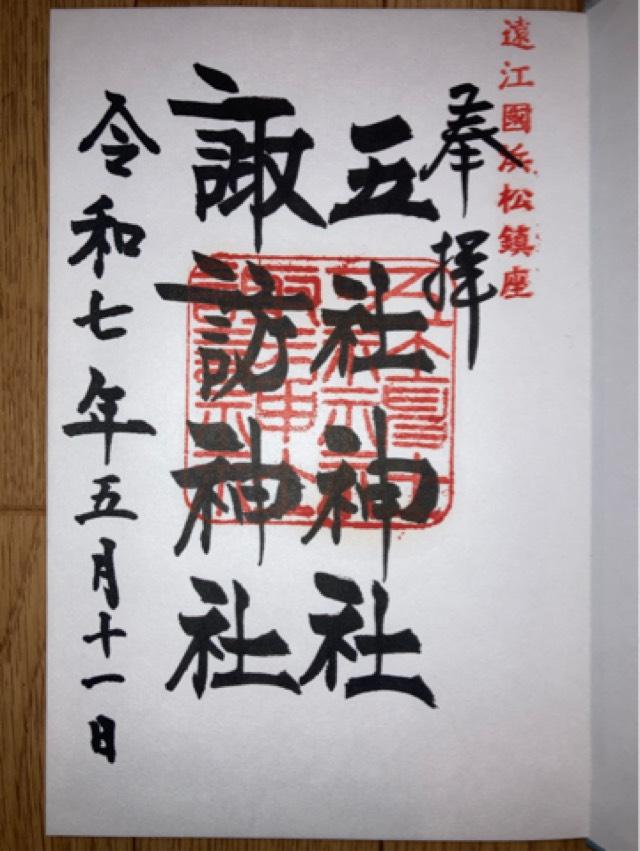 遠江國浜松鎮座
奉拝
五社神社
諏訪神社
令和七年五月十一日